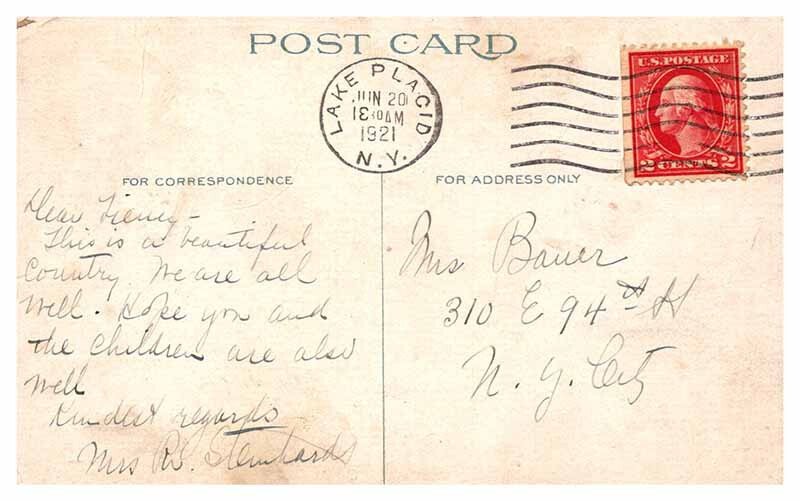 POST CARD
LAKE PLACID
JUN 20
1921
N.Y.
U.S. POSTAGE
2 CENTS 2
FOR CORRESPONDENCE
FOR ADDRESS ONLY
Dear
This is a beautiful
Country. We are all
well. Hope you and
the children are also
well
Kindest regards
Mrs
Mrs Bauer
310 E 94th St
N. Y. City